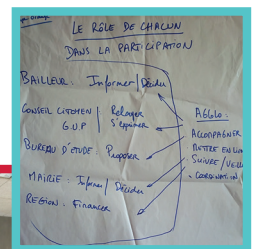 LE RÔLE DE CHACUN
DANS LA PARTICIPATION
BAILLEUR : Informer / Décider
CONSEIL CITOYEN / Relayer
G.U.P / S'exprimer
BUREAU D'ETUDE : Proposer
MAIRIE : Informer / Décider
REGION : Financer
AGGLO :
ACCOMPAGNER
METTRE EN LIEN
SUIVRE /
COORDINATION